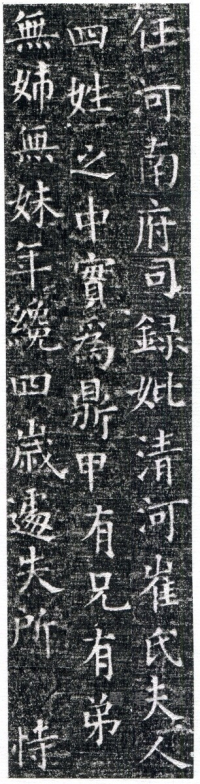 任河南府司録妣清河崔氏夫人
四姓之中實為鼎甲有兄有弟
無姉無妹年纔四歲遽失所恃